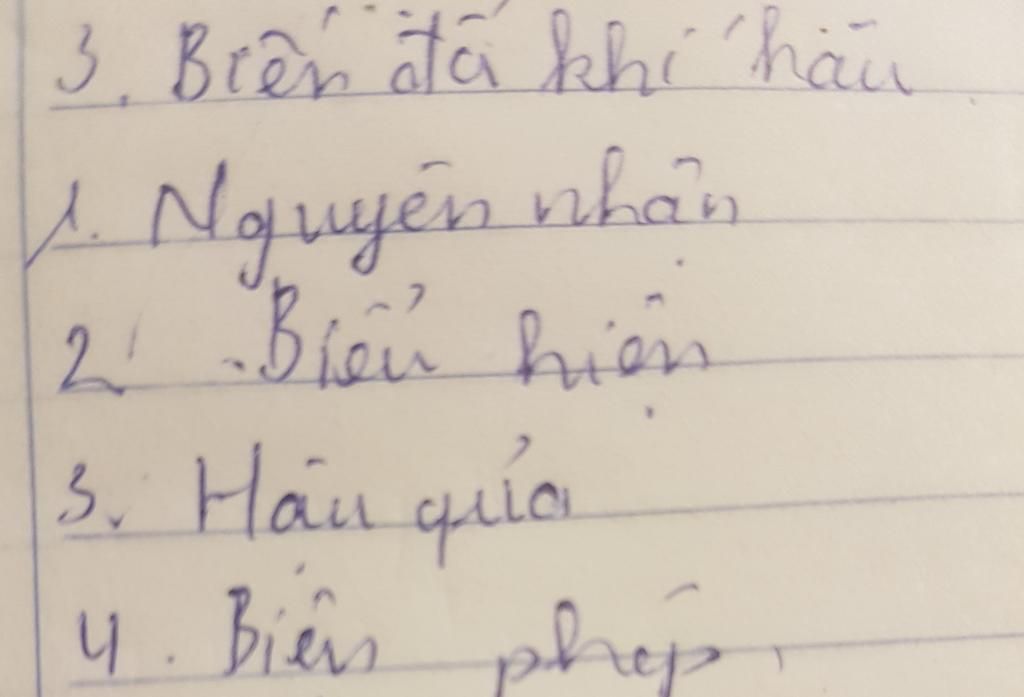 3. Biến đổi khí hậu
1. Nguyên nhân
2. Biểu hiện
3. Hậu quả
4. Biện pháp